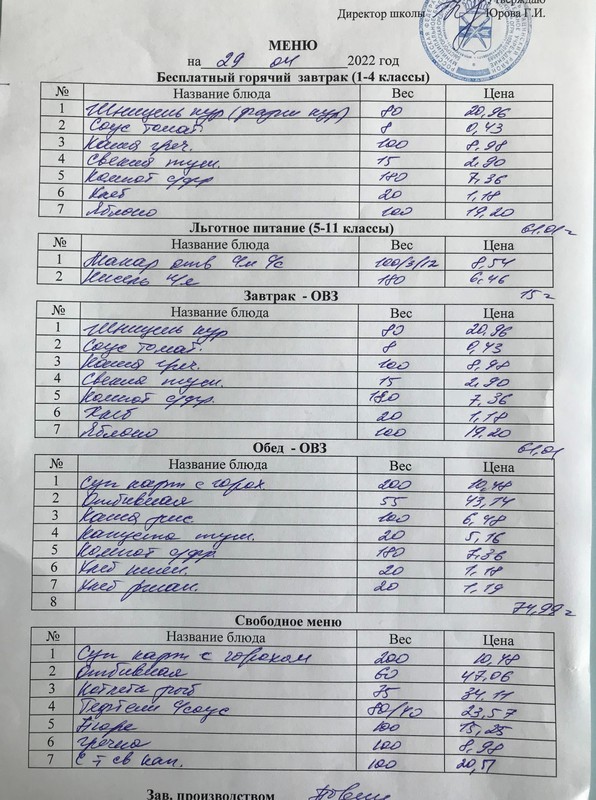 Утверждаю
Директор школы Юрова Г.И.
МЕНЮ
на 29 2022 год
Бесплатный горячий завтрак (1-4 классы)
№ Название блюда Вес Цена
1 Шницель кур (фарш кур) 80 20,96
2 Соус томат. 8 0,43
3 Каша греч. 100 8,98
4 Свекла туш. 15 2,90
5 Компот с/фр 180 7,36
6 Хлеб 20 1,18
7 Яблоко 100 19,20
Льготное питание (5-11 классы) 61,01
№ Название блюда Вес Цена
1 Макар отв 100/3/12 8,54
2 Кисель 180 6,46
Завтрак - ОВЗ 15
№ Название блюда Вес Цена
1 Шницель кур 80 20,96
2 Соус томат. 8 0,43
3 Каша греч. 100 8,98
4 Свекла туш. 15 2,90
5 Компот с/фр. 180 7,36
6 Хлеб 20 1,18
7 Яблоко 100 19,20
Обед - ОВЗ 61,01
№ Название блюда Вес Цена
1 Суп карт с горох 200 10,48
2 Отбивная 55 43,14
3 Каша рис. 100 6,48
4 Капуста туш. 20 5,16
5 Компот с/фр 180 7,36
6 Хлеб пшен. 20 1,18
7 Хлеб ржан. 20 1,19
8 74,99
Свободное меню
№ Название блюда Вес Цена
1 Суп карт с горохом 200 10,48
2 Отбивная 60 47,06
3 Котлета рыб 75 34,11
4 Тефтели с/соус 80/40 23,57
5 Пюре 100 15,25
6 гречка 100 8,98
7 С-т св кап. 100 20,71
Зав. производством